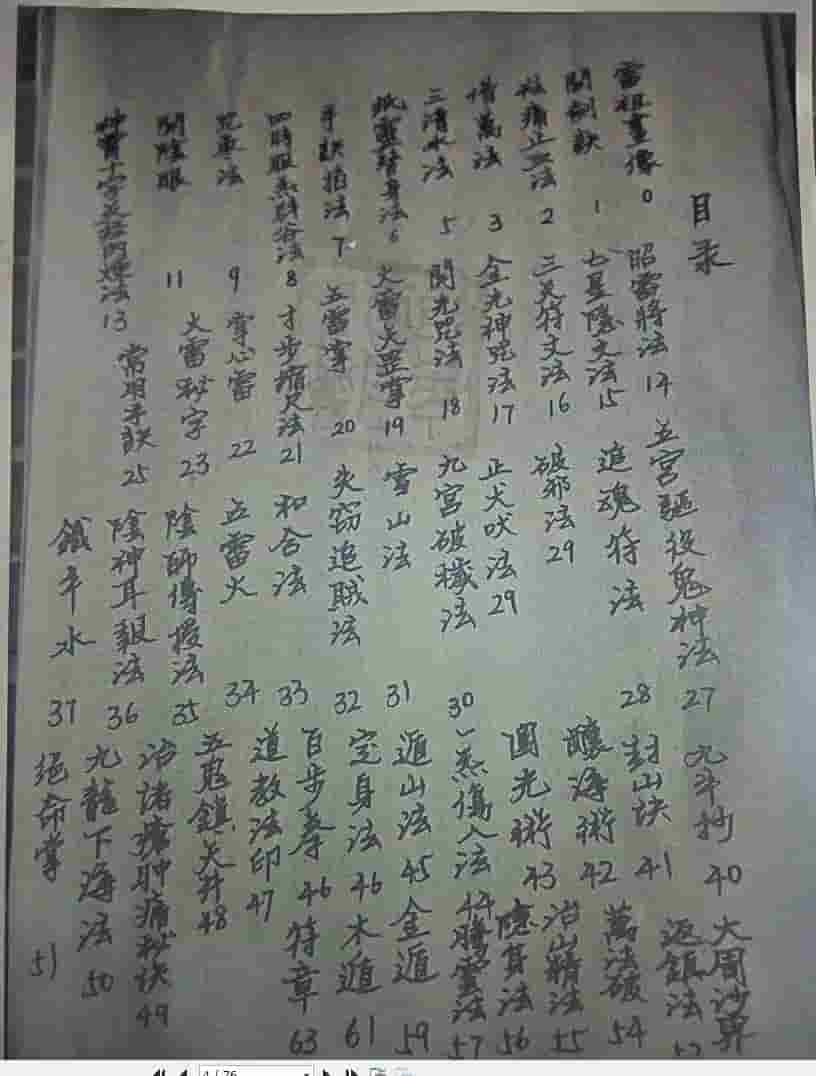 目录
雷祖畫像 0
開劍訣 1
止血法 2
借萬法 3
三清水法 5
替身法 6
手訣拍法 7
四時服炁辟谷法 8
法 9
開陰眼 11
內煉法 13
昭雷將法 14
七星隱文法 15
三天符文法 16
金光神咒法 17
開光咒法 18
火雷火罡掌 19
五雷掌 20
寸步縮尺法 21
掌心雷 22
火雷秘字 23
常用手訣 25
五宮驅役鬼神法 27
追魂符法 28
破邪法 29
止犬吠法 29
九宮破穢法 30
雪山法 31
失竊追賊法 32
和合法 33
五雷火 34
陰師傳授法 35
陰神耳報法 36
鐵牛水 37
九牛抄 40
封山块 41
釀海術 42
圓光術 43
一炁傷人法 44
遁山法 45
定身法 46
百步拳 46
道教法印 47
五鬼鎮天井 48
治諸瘡肿痛秘诀 49
九龍下海法 50
絕命掌 51
大周沙算
返鎮法
萬法破 54
治山精法 55
隱身法 56
騰雲法 57
金遁 59
木遁 61
符章 63
4 / 76